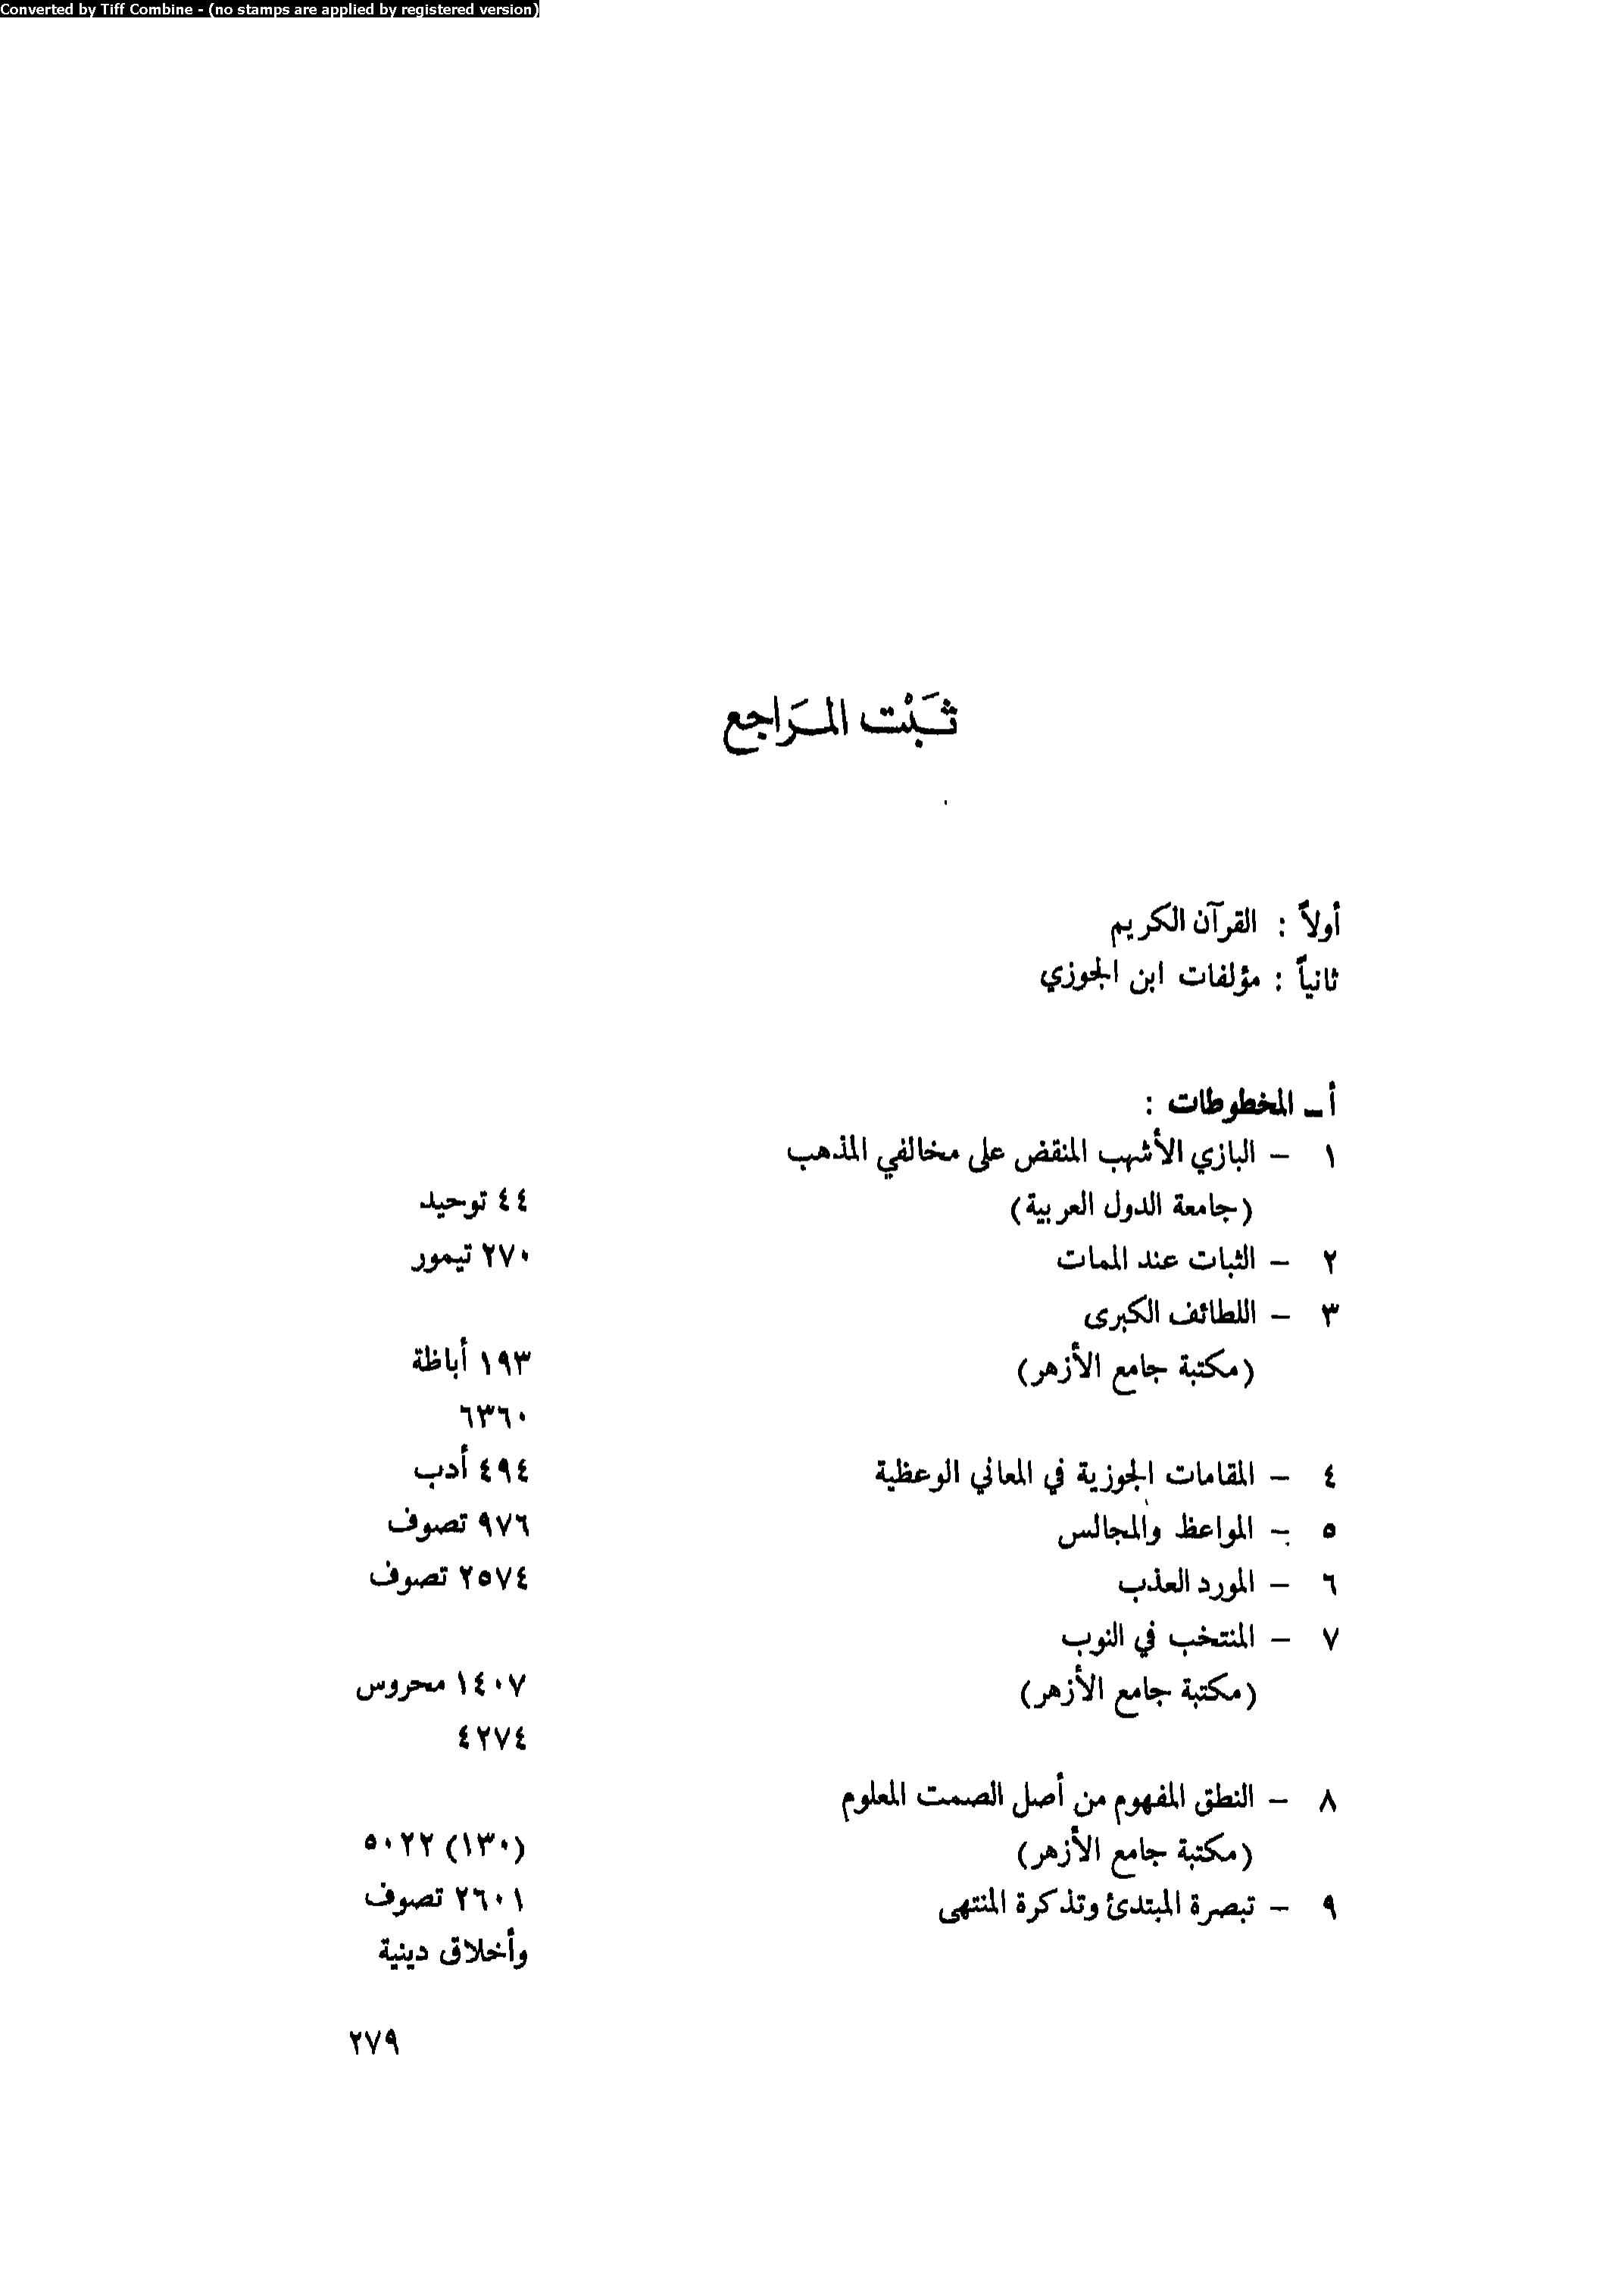 Converted by Tiff Combine - (no stamps are applied by registered version)
ثَبْت المَراجع
أولاً : القرآن الكريم
ثانياً : مؤلفات ابن الجوزي
أ ـ المخطوطات :
١ – البازي الأشهب المنقض على مخالفي المذهب
(جامعة الدول العربية) ٤٤ توحيد
٢ – الثبات عند الممات ٢٧٠ تيمور
٣ – اللطائف الكبرى
(مكتبة جامع الأزهر) ١٩٣ أباظة
٦٣٦٠
٤ – المقامات الجوزية في المعاني الوعظية ٤٩٤ أدب
٥ – المواعظ والمجالس ٩٧٦ تصوف
٦ – المورد العذب ٢٥٧٤ تصوف
٧ – المنتخب في النوب
(مكتبة جامع الأزهر) ١٤٠٧ محروس
٤٢٧٤
٨ – النطق المفهوم من أصل الصمت المعلوم
(مكتبة جامع الأزهر) (١٣٠) ٥٠٢٢
٩ – تبصرة المبتدئ وتذكرة المنتهى ٢٦٠١ تصوف
وأخلاق دينية
٢٧٩